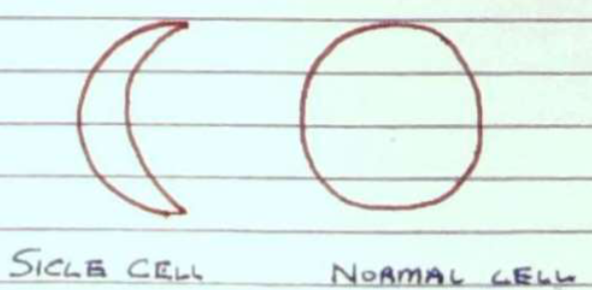 SICLE CELL
NORMAL CELL